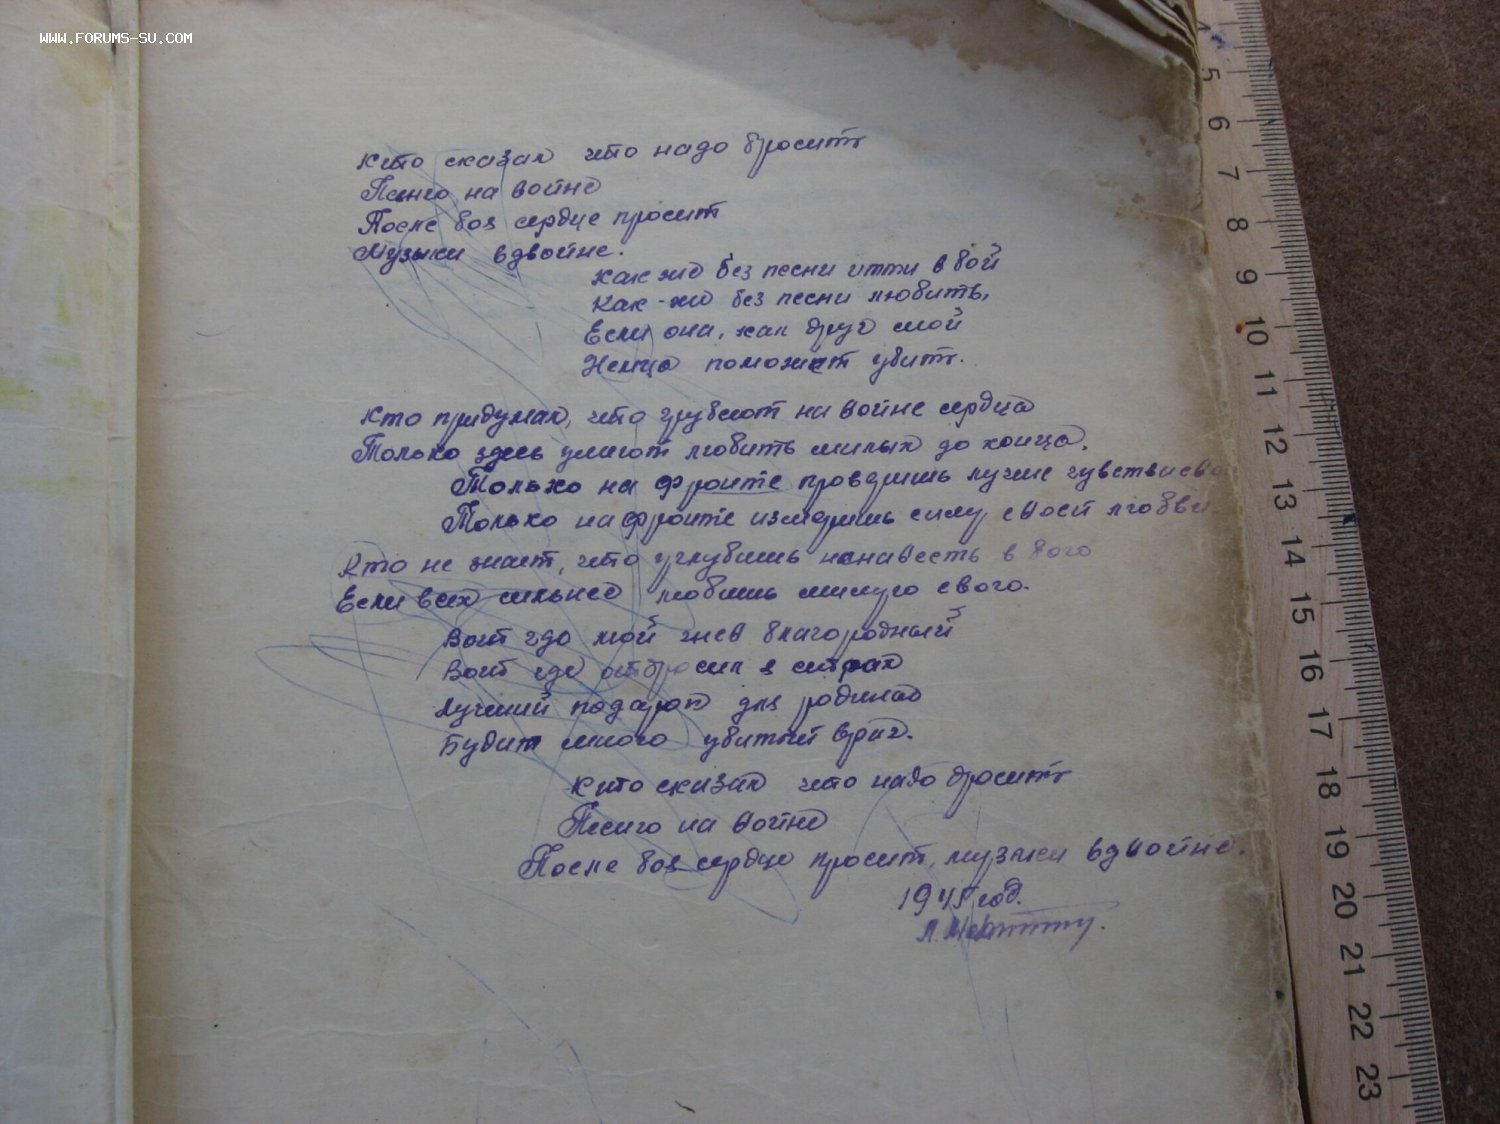 WWW.FORUMS-SU.COM
Кто сказал что надо бросить
Песню на войне
После боя сердце просит
Музыки вдвойне.
Как же без песни итти в бой
Как-же без песни любить,
Если она, как друг мой
Немца поможет убить.
Кто придумал, что грубеют на войне сердца
Только здесь умеют любить милых до конца.
Только на фронте проверишь лучшие чувства
Только на фронте измеришь силу своей любви.
Кто не знает, что углубишь ненависть в
Если всех сильнее любишь милую свою.
Вот где мой гнев благородный
Вот где отбросил я страх
Лучший подарок для родины
Будит много убитый враг.
Кто сказал что надо бросить
Песню на войне
После боя сердце просит, музыки вдвойне.
1945 год.
5
6
7
8
9
10
11
12
13
14
15
16
17
18
19
20
21
22
23